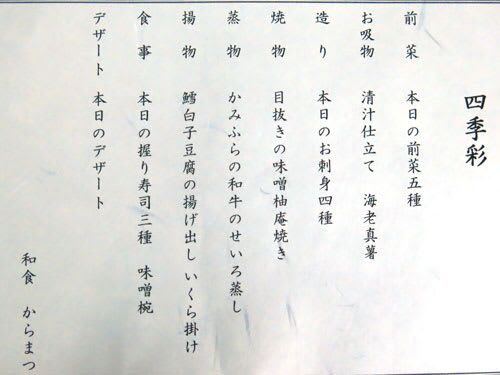 四季彩
前菜 本日の前菜五種
お吸物 清汁仕立て 海老真薯
造り 本日のお刺身四種
焼物 目抜きの味噌柚庵焼き
蒸物 かみふらの和牛のせいろ蒸し
揚物 鱈白子豆腐の揚げ出し いくら掛け
食事 本日の握り寿司三種 味噌椀
デザート 本日のデザート
和食 からまつ